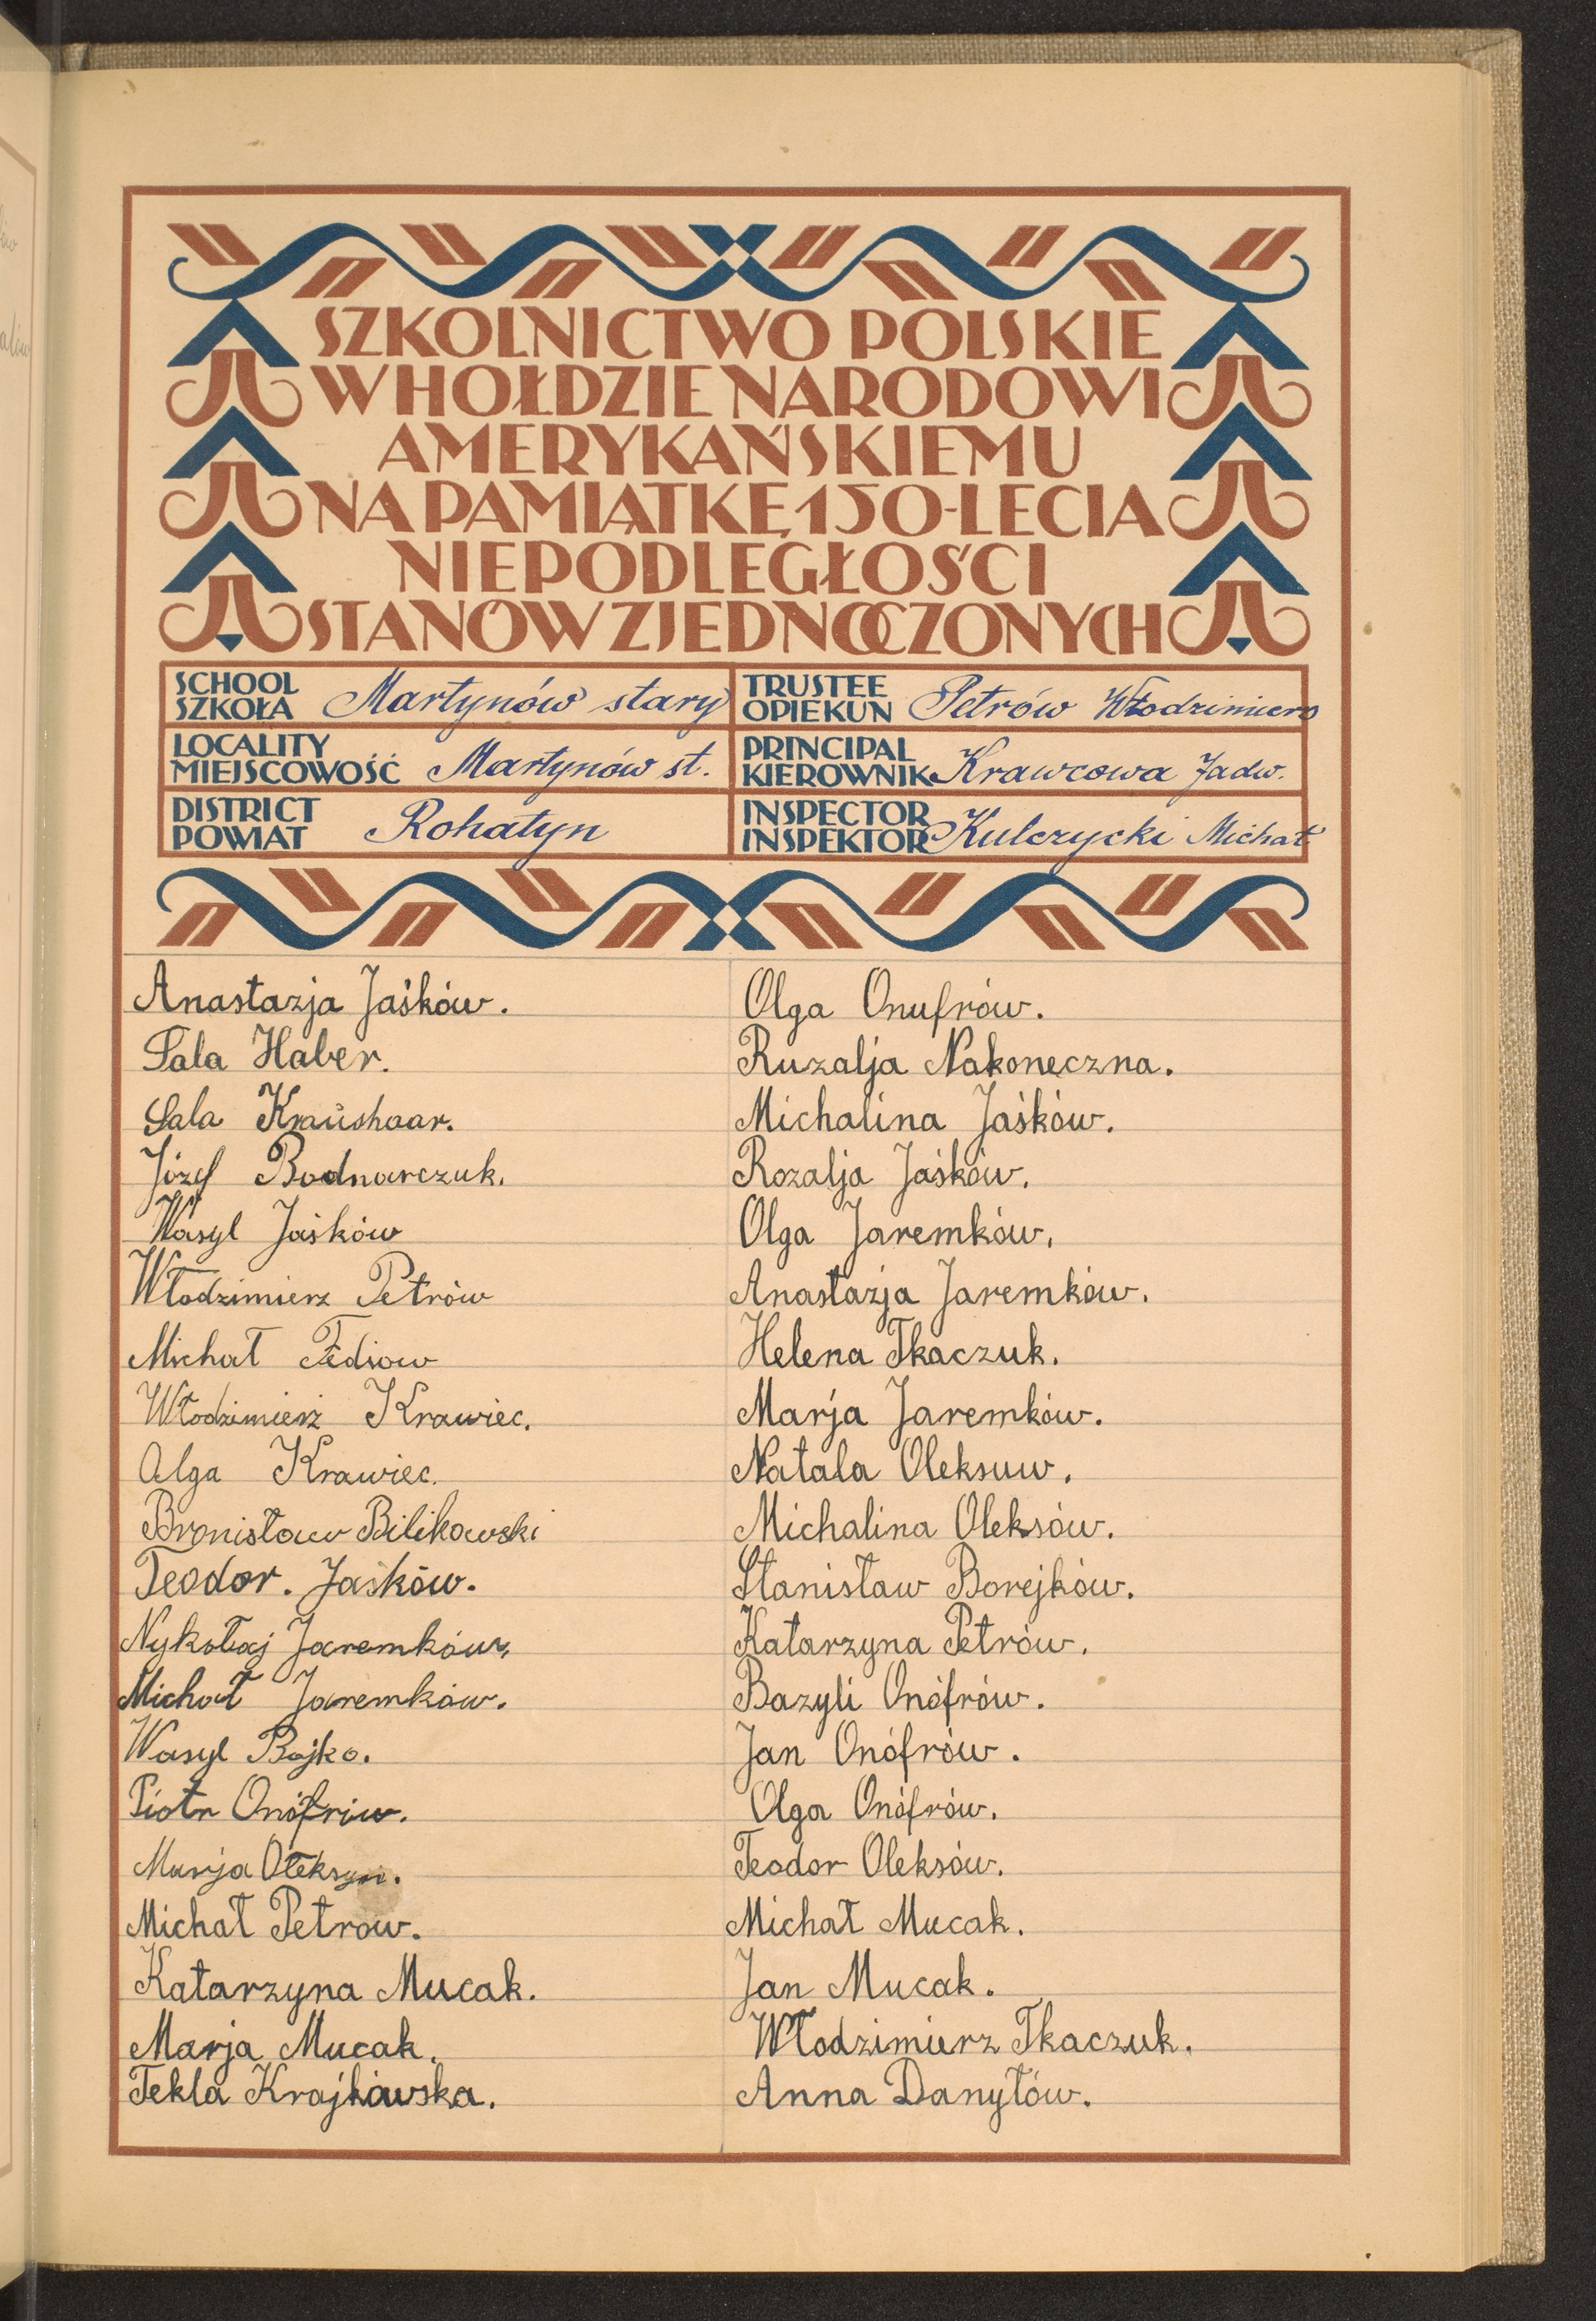 SZKOLNICTWO POLSKIE
W HOŁDZIE NARODOWI
AMERYKAŃSKIEMU
NA PAMIĄTKĘ 150-LECIA
NIEPODLEGŁOŚCI
STANÓW ZJEDNOCZONYCH
SCHOOL
SZKOŁA Martynów stary
TRUSTEE
OPIEKUN Petrów Włodzimierz
LOCALITY
MIEJSCOWOŚĆ Martynów st.
PRINCIPAL
KIEROWNIK Krawcowa Jadw.
DISTRICT
POWIAT Rohatyn
INSPECTOR
INSPEKTOR Kulczycki Michał
Anastazja Jaśków.
Sala Haber.
Sala Kraushaar.
Józef Bodnarczuk.
Wasyl Jaśków
Włodzimierz Petrów
Michał Fediow
Włodzimierz Krawiec.
Olga Krawiec.
Bronisław Bilikowski
Teodor. Jaśków.
Nykołaj Jaremków.
Michał Jaremków.
Wasyl Bojko.
Piotr Onófriw.
Marja
Michał Petrow.
Katarzyna Mucak.
Marja Mucak.
Tekla Krajkiwska.
Olga Onufrów.
Ruzalja Nakoneczna.
Michalina Jaśków.
Rozalja Jaśków.
Olga Jaremków.
Anastazja Jaremków.
Helena Tkaczuk.
Marja Jaremków.
Natala Oleksuw.
Michalina Oleksów.
Stanisław Borejków.
Katarzyna Petrów.
Bazyli Onófrów.
Jan Onófrów.
Olga Onófrów.
Teodor Oleksów.
Michał Mucak.
Jan Mucak.
Włodzimierz Tkaczuk.
Anna Danyłów.